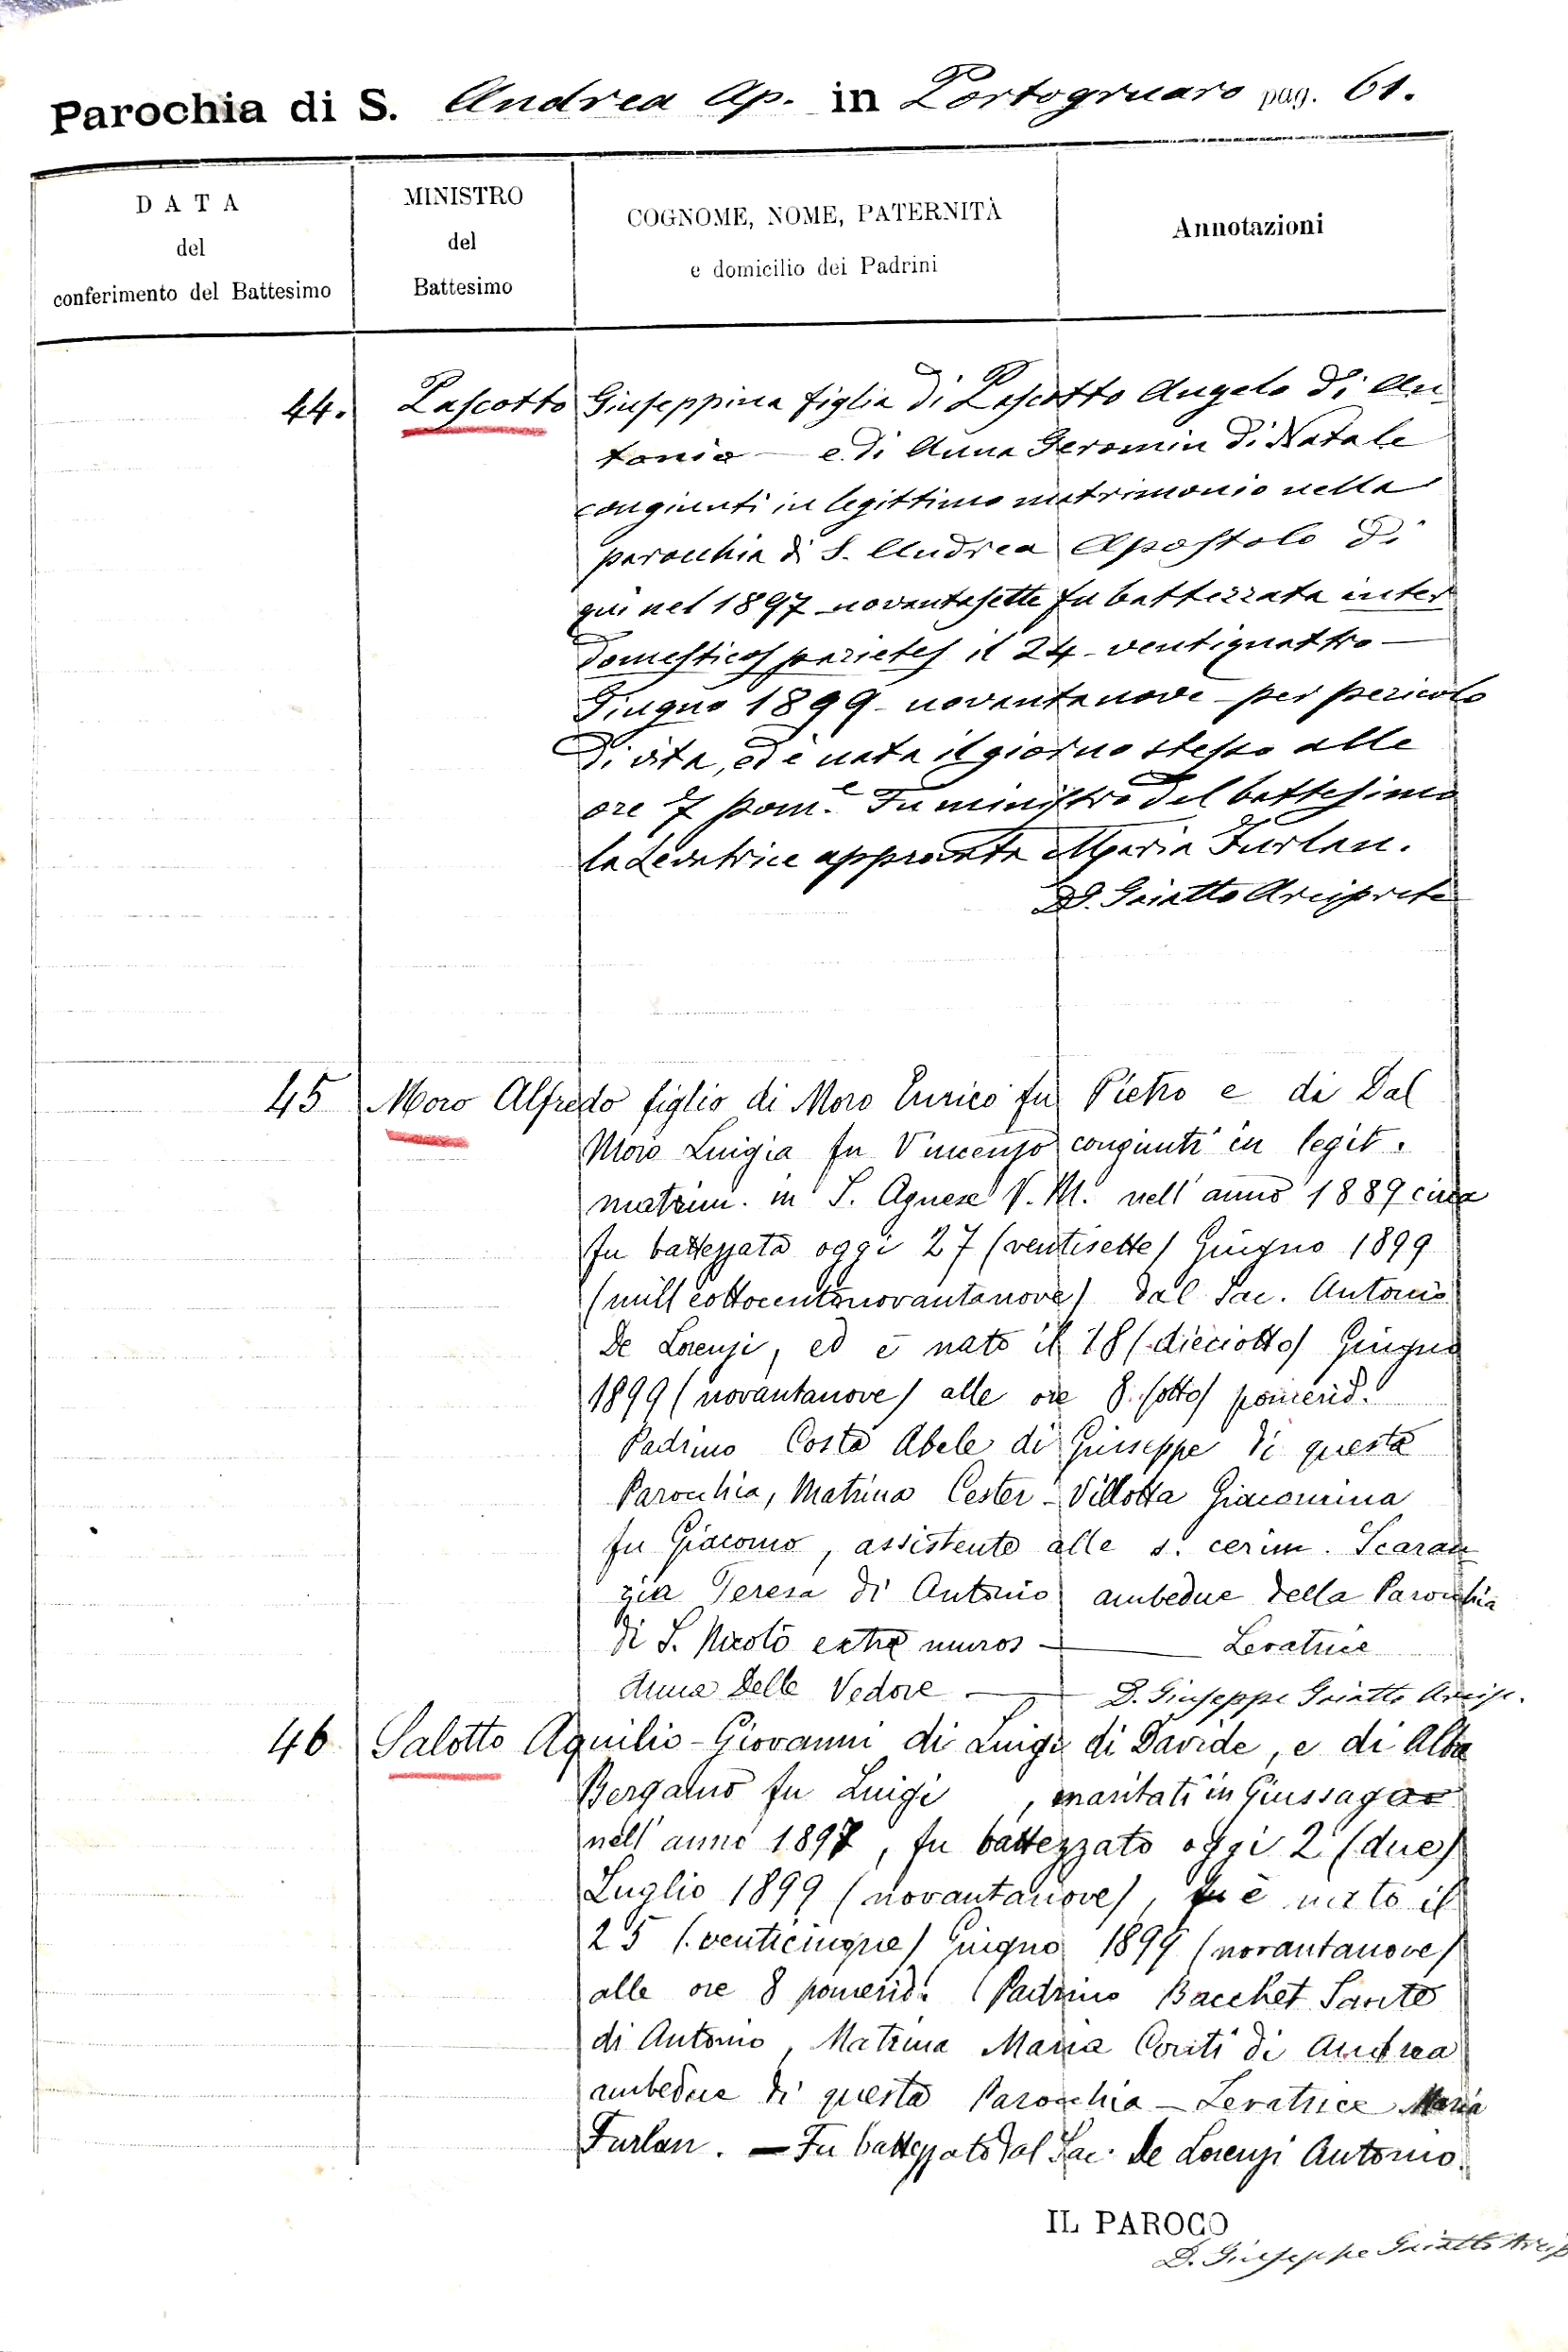 Parochia di S. Andrea Ap. in Portogruaro pag. 61.
DATA
del
conferimento del Battesimo
MINISTRO
del
Battesimo
COGNOME, NOME, PATERNITÀ
e domicilio dei Padrini
Annotazioni
44. Pascotto Giuseppina figlia di Pascotto Angelo di An
tonio — e di Anna Geromin di Natale
congiunti in legittimo matrimonio nella
parocchia di S. Andrea Apostolo di
qui nel 1897 novantasette fu battezzata inter
domesticos parietes il 24 - ventiquattro —
Giugno 1899 - novantanove - per pericolo
di vita, ed è nata il giorno stesso alle
ore 7 pom.e Fu ministro del battesimo
la Levatrice approvata Maria Furlan.
D. Arciprete
45 Moro Alfredo figlio di Moro Enrico fu Pietro e di Dal
Moro Luigia fu Vincenzo congiunti in legit.
matrim. in S. Agnese V. M. nell'anno 1889 circa
fu battezzato oggi 27 (ventisette) Giugno 1899
(milleottocentonovantanove) dal Sac. Antonio
De Lorenzi, ed è nato il 18 (dieciotto) Giugno
1899 (novantanove) alle ore 8. (otto) pomerid.
Padrino Costa Abele di Giuseppe di questa
Parocchia, Matrina Cester - Villotta Giacomina
fu Giacomo, assistente alle s. cerim. Scaran
zin Teresa di Antonio ambedue della Parocchia
di S. Nicolò extra muros — Levatrice
Anna Delle Vedove — D. Giuseppe Arcip.
46 Salotto Aquilio - Giovanni di Luigi di Davide, e di Alba
Bergamo fu Luigi , maritati in Giussago
nell'anno 1897, fu battezzato oggi 2 (due)
Luglio 1899 (novantanove), è nato il
25 (venticinque) Giugno 1899 (novantanove)
alle ore 8 pomerid. Padrino Bacchet Sante
di Antonio, Matrina Maria Conti di Andrea
ambedue di questa Parocchia - Levatrice Maria
Furlan. — Fu battezzato dal Sac. De Lorenzi Antonio.
IL PAROCO
D. Giuseppe Arcip